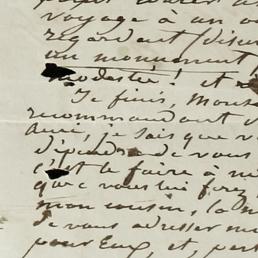 voyage à un
regardant (discu
un monument,
modeste! et
Je finis, Mons
recommandant
Ami, je sais que v
dépendra de vous
c'est le faire à
que vous lui ferez
mon cousin, la
de vous adresser
pour Eux, et, par